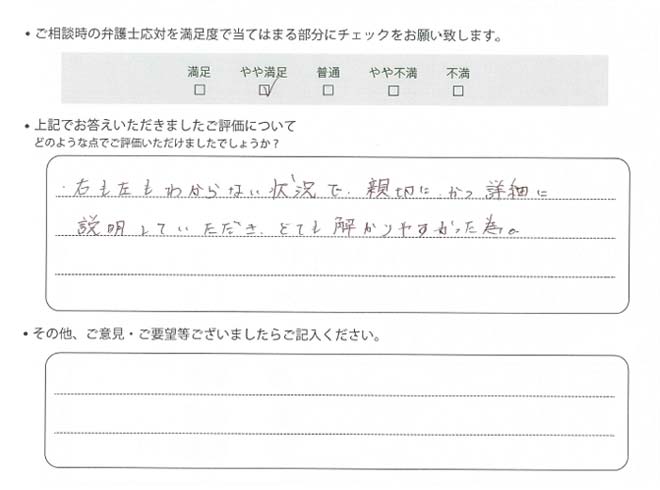 ・ご相談時の弁護士応対を満足度で当てはまる部分にチェックをお願い致します。
満足 やや満足 普通 やや不満 不満
・上記でお答えいただきましたご評価について
どのような点でご評価いただけましたでしょうか？
・右も左もわからない状況で、親切に、かつ詳細に
説明していただき、とても解かりやすかった為。
・その他、ご意見・ご要望等ございましたらご記入ください。